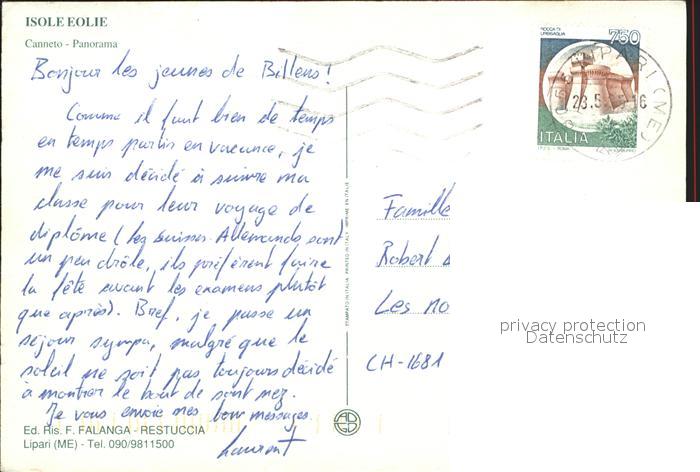 ISOLE EOLIE
Canneto - Panorama
Bonjour les jeunes de Billens!
Comme il faut bien de temps
en temps partir en vacance, je
me suis décidé à suivre ma
classe pour leur voyage de
diplôme (les Suisses-Allemands sont
un peu drôle, ils préfèrent faire
la fête avant les examens plutôt
que après). Bref, je passe un
séjour sympa, malgré que le
soleil ne soit pas toujours décidé
à montrer le bout de sont nez.
Je vous envoie mes bons messages.
Laurent
Ed. Ris. F. FALANGA - RESTUCCIA
Lipari (ME) - Tel. 090/9811500
STAMPATO IN ITALIA PRINTED IN ITALY IMPRIME EN ITALIE
ROCCA DI
URBISAGLIA
750
ITALIA
LIPARI (ME)
Famille
Robert
Les
CH-1681
privacy protection
Datenschutz